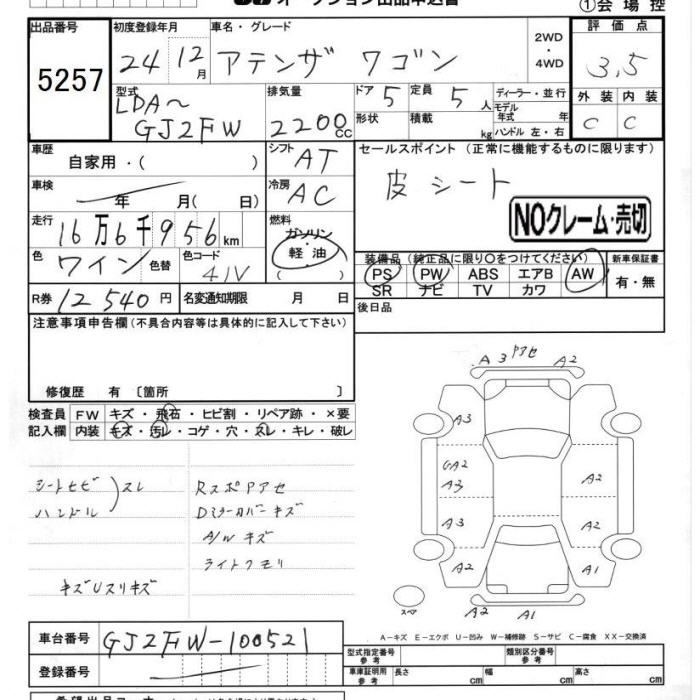 オークション出品申込書
①会場控
出品番号
5257
初度登録年月
24 12月
車名・グレード
アテンザ ワゴン
2WD
・
4WD
評価点
3,5
外装 内装
C C
型式
LDA〜
GJ2FW
排気量
2200CC
ドア 5
定員 5人
形状
積載 kg
ディーラー・並行
モデル年式 年
ハンドル 左・右
車歴
自家用・( )
シフト AT
セールスポイント (正常に機能するものに限ります)
皮シート
NOクレーム・売切
車検
年 月( 日)
冷房 AC
走行
16万6千956km
燃料
ガソリン
軽油
( )
色 ワイン 色替
色コード 41V
装備品 (純正品に限り○をつけてください)
新車保証書
PS PW ABS エアB AW
SR ナビ TV カワ
有・無
R券 12540円
名変通知期限 月 日
後日品
注意事項申告欄(不具合内容等は具体的に記入して下さい)
修復歴 有 〔箇所 〕
検査員 FW キズ・飛石・ヒビ割・リペア跡・×要
記入欄 内装 キズ・汚レ・コゲ・穴・スレ・キレ・破レ
シートセビ
ハンドル
スレ
キズUスリキズ
RスポPアセ
Dミラーカバーキズ
A/Wキズ
ライトクモリ
A3 Pアセ A2
A3
GA2
A3 A2
A3 A2
A2 A1
A2 A1
スペア
A−キズ E−エクボ U−凹み W−補修跡 S−サビ C−腐食 XX−交換済
車台番号 GJ2FW-100521
登録番号
型式指定番号 参考
類別区分番号 参考
車庫証明用 参考
長さ cm 幅 cm 高さ cm